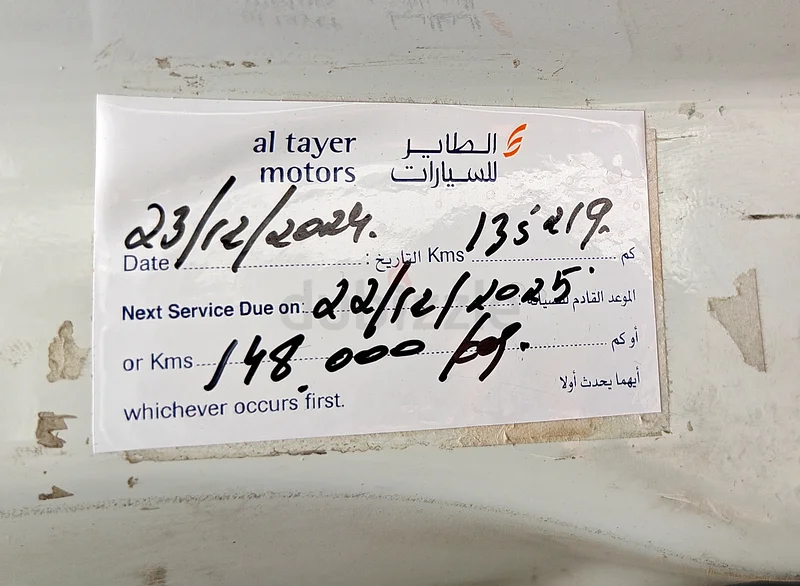 al tayer motors
الطاير للسيارات
23/12/2024. 135219.
Date : التاريخ Kms كم
Next Service Due on: 22/12/2025. الموعد القادم للصيانة
or Kms 148.000 أو كم
whichever occurs first. أيهما يحدث أولا
dubizzle